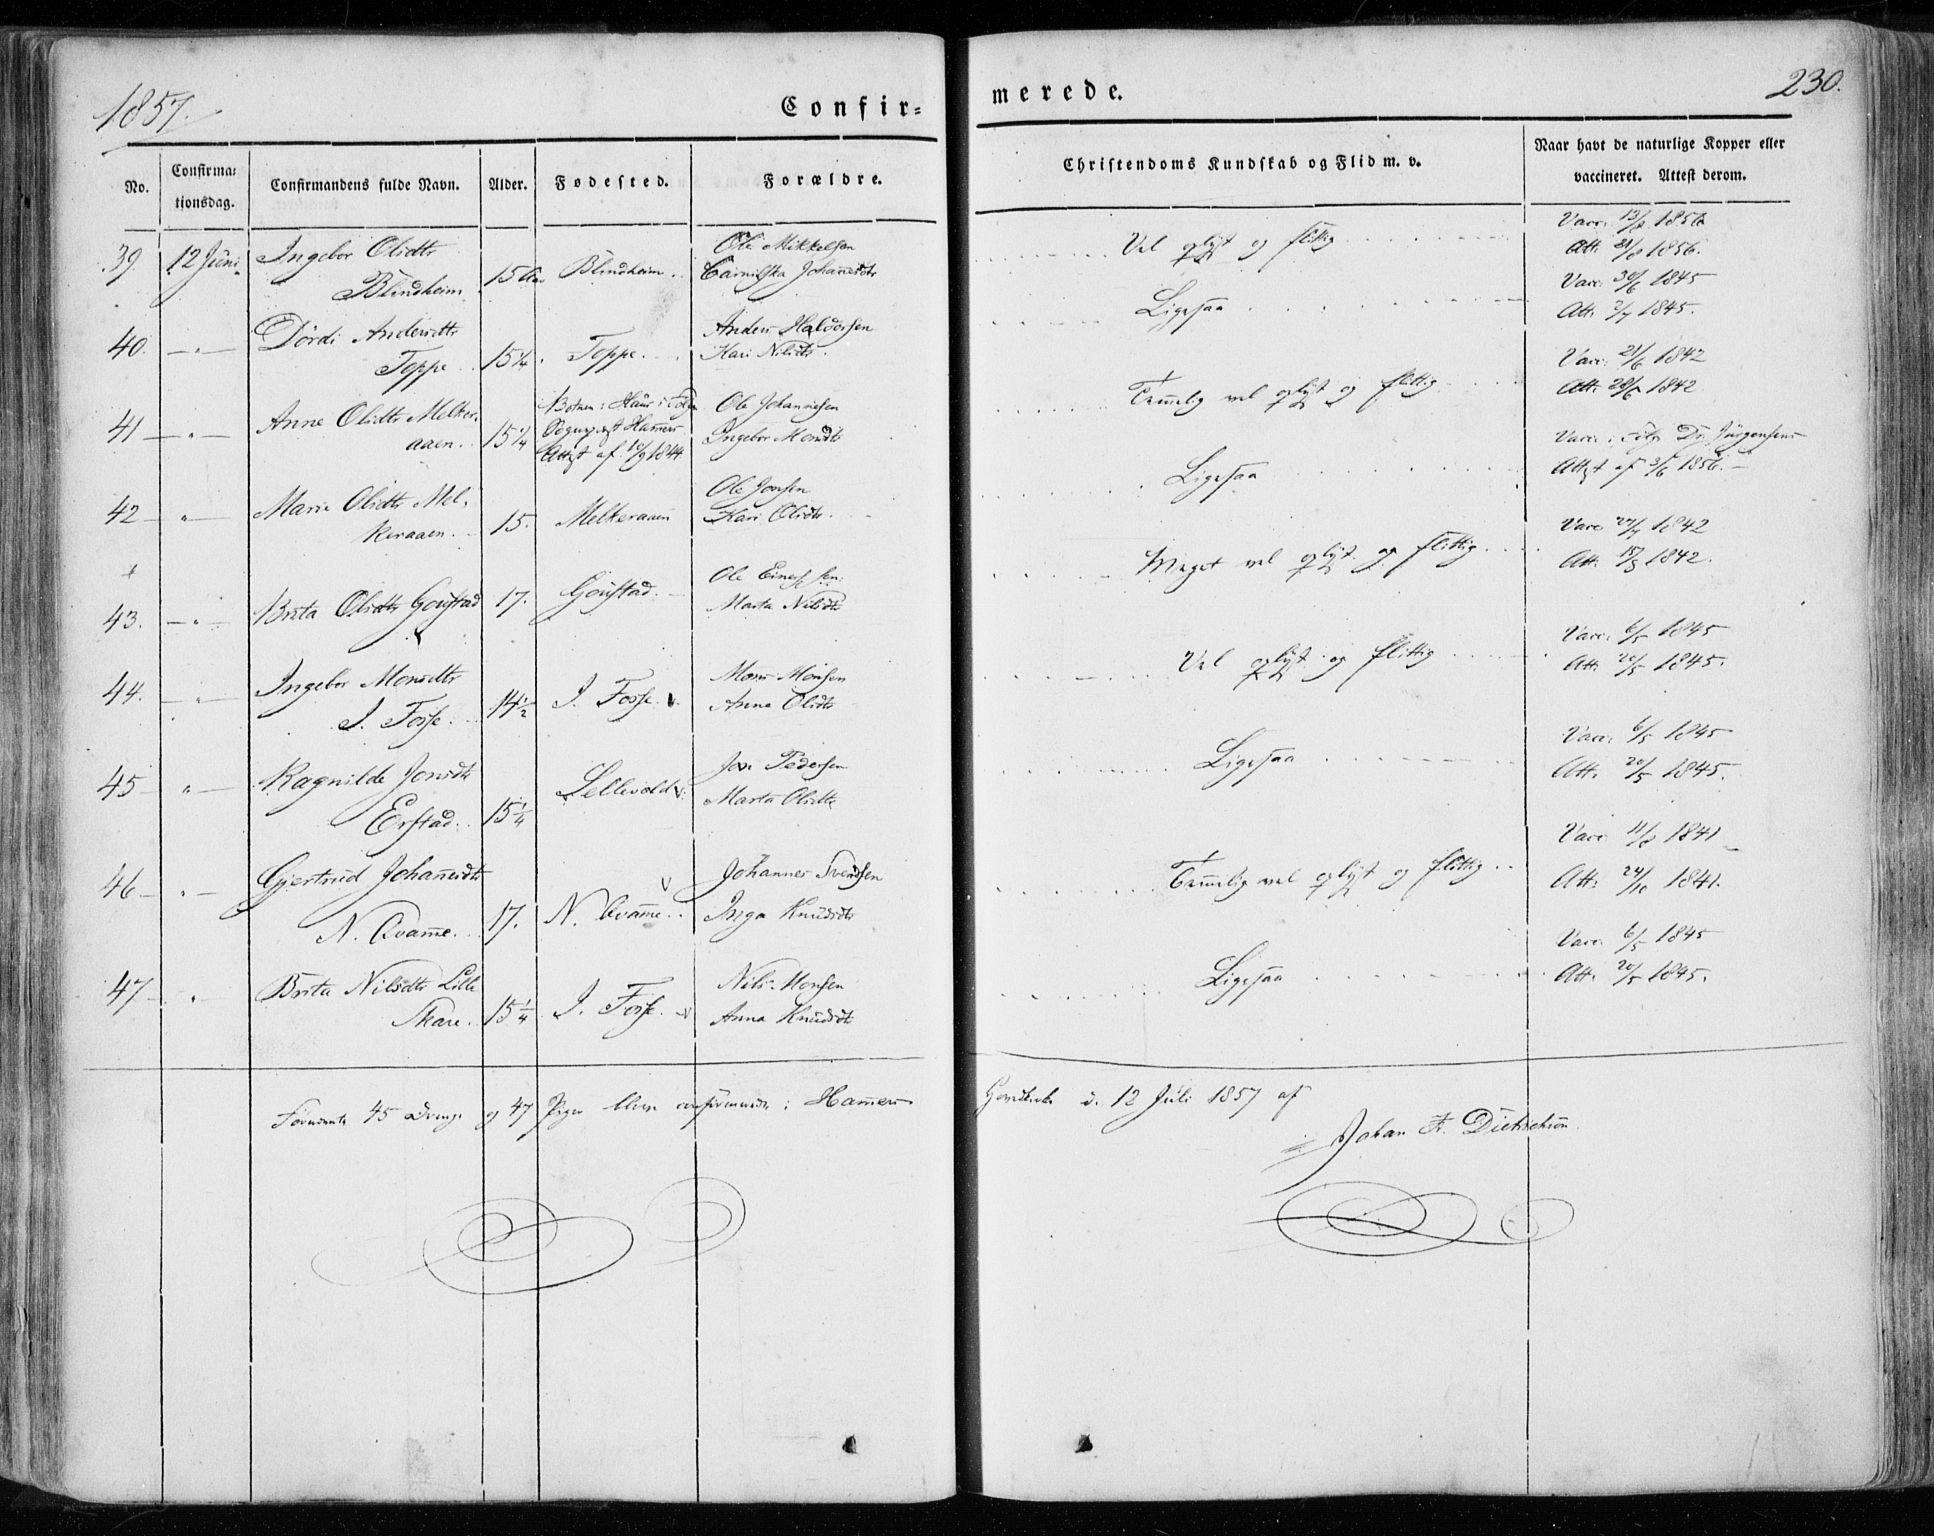 1857.
Confir=
merede.
230.
No.
Confirma=
tionsdag.
Confirmandens fulde Navn.
Alder.
Fødested.
Forældre.
Christendoms Kundskab og Flid m. v.
Naar havt de naturlige Kopper eller
vaccineret. Attest derom.
39 12 Juni Ingebor Olsdtr
Blindheim 15 Blindheim
Ole Mikkelsen
Johannesdtr
Vel oplyst og flittig
Vacc. 13/8 1856
Att. 21/8 1856.
40. — " — Dørdi Andersdtr
Toppe 15 1/4. Toppe.
Anders Haldorsen
Kari Nilsdtr.
Ligesaa
Vacc. 30/6 1845
Att. 2/7 1845.
41 — " — Anne Olsdtr Melker
aaen. 15 1/4
Botnen i Haus
Hammer
Attest af 10/9 1844.
Ole Johannesen
Ingebor Monsdtr
Temmelig vel oplyst og flittig
Vacc. 21/6 1842
Att. 28/6 1842
42 — " — Marie Olsdtr Mel-
keraaen. 15. Melkeraaen
Ole Jonsen
Kari Olsdtr.
Ligesaa
Vacc. Dr. Jürgensens
Attest af 3/6 1856.
43. — " — Brita Olsdtr Goustad 17. Goustad.
Ole
Marta Nilsdtr
Meget vel oplyst og flittig
Vacc 27/7 1842
Att. 15/8 1842.
44. — " — Ingebor Monsdtr
I. Fosse. 14 1/2 I. Fosse.
Mons Monsen
Anna Olsdtr
Vel oplyst og flittig
Vacc. 6/5 1845
Att. 20/5 1845.
45 — " — Ragnilde Jonsdtr
Erstad. 15 1/4 Lellevold
Jon Pedersen
Marta Olsdtr
Ligesaa
Vacc. 6/5 1845
Att. 20/5 1845.
46 — " — Gjertrud Johannesdtr
N. Qvamme. 17. N. Qvamme.
Johannes Svendsen
Inga Knudsdtr
Temmelig vel oplyst og flittig
Vacc. 11/8 1841
Att. 24/10 1841.
47 — " — Brita Nilsdtr Lille
Skare. 15 1/4 I. Fosse.
Nils Monsen
Anna Knudsdtr
Ligesaa
Vacc. 6/5 1845
Att. 20/5 1845.
45 Drenge og 47 Piger bleve confirmerede i Hammers Hovedkirke d. 12 Juli 1857 af
Johan Fr. Dietrichson